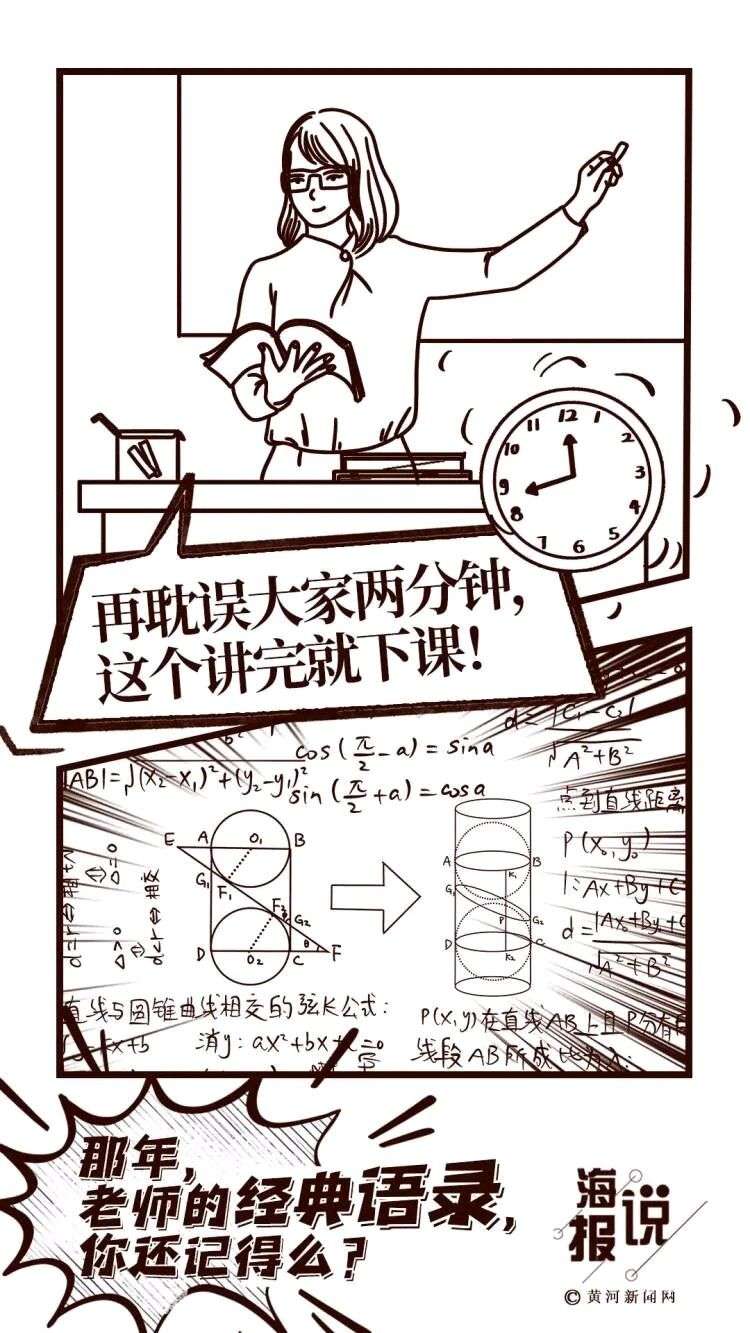 12
1
2
3
4
5
6
7
8
9
10
11
再耽误大家两分钟,
这个讲完就下课!
cos(π/2-a)=sina
|AB|=√(x₂-x₁)²+(y₂-y₁)²
sin(π/2+a)=cosa
d=|C₁-C₂|/√A²+B²
点到直线距离
P(x₀,y₀)
l:Ax+By+C
d=|Ax₀+By₀+C
√A²+B²
E A O₁ B
G₁ F₁
F₂ G₂
D O₂ C θ F
A K₁ B
G₁ P G₂
D K₂ C
Δ=0
Δ>0
d<r⇔相交
直线与圆锥曲线相交的弦长公式:
消y:ax²+bx+c=0
P(x,y)在直线AB上且P分有
线段AB所成比为λ:
那年,
老师的经典语录,
你还记得么?
海报说
©黄河新闻网